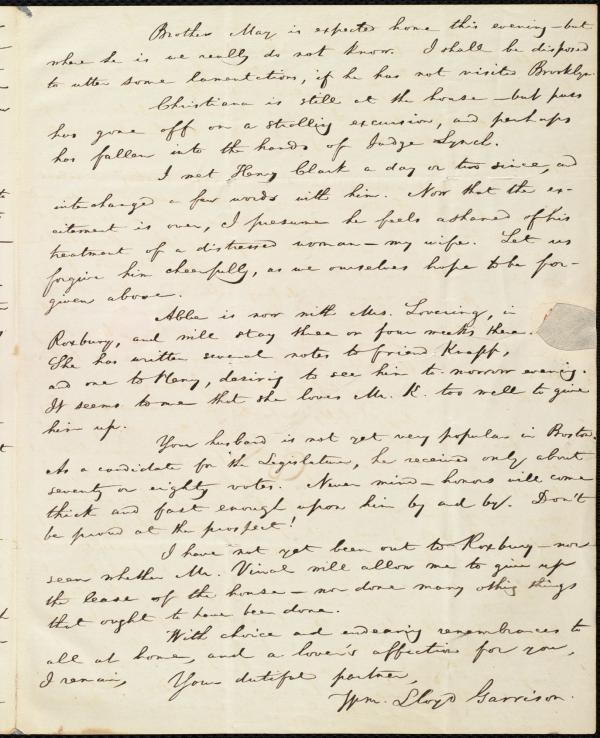 Brother May is expected home this evening—but
where he is we really do not know. I shall be disposed
to utter some lamentations, if he has not visited Brooklyn.
Christiana is still at the house—but puss
has gone off on a strolling excursion, and perhaps
has fallen into the hands of Judge Lynch.
I met Henry Clark a day or two since, and
interchanged a few words with him. Now that the ex-
citement is over, I presume he feels ashamed of his
treatment of a distressed woman—my wife. Let us
forgive him cheerfully, as we ourselves hope to be for-
given above.
Abba is now with Mrs. Lovering, in
Roxbury, and will stay three or four weeks there.
She has written several notes to friend Knapp,
and one to Henry, desiring to see him to-morrow evening.
It seems to me that she loves Mr. K. too well to give
him up.
Your husband is not yet very popular in Boston.
As a candidate for the Legislature, he received only about
seventy or eighty votes. Never mind—honors will come
thick and fast enough upon him by and by. Don't
be proud at the prospect!
I have not yet been out to Roxbury—nor
seen whether Mr. Vinal will allow me to give up
the lease of the house—nor done many other things
that ought to have been done.
With choice and endearing remembrances to
all at home, and a lover's affection for you,
I remain, Your dutiful partner,
Wm. Lloyd Garrison.